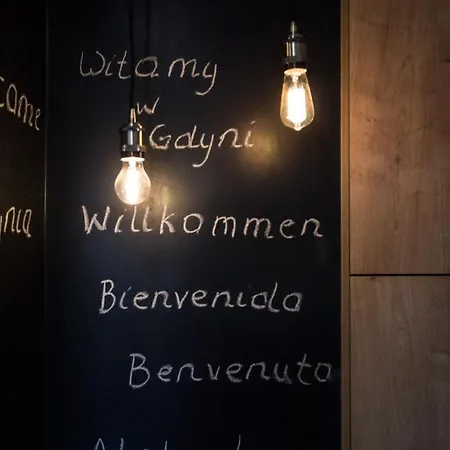 Witamy
w
Gdyni
Willkommen
Bienvenida
Benvenuta